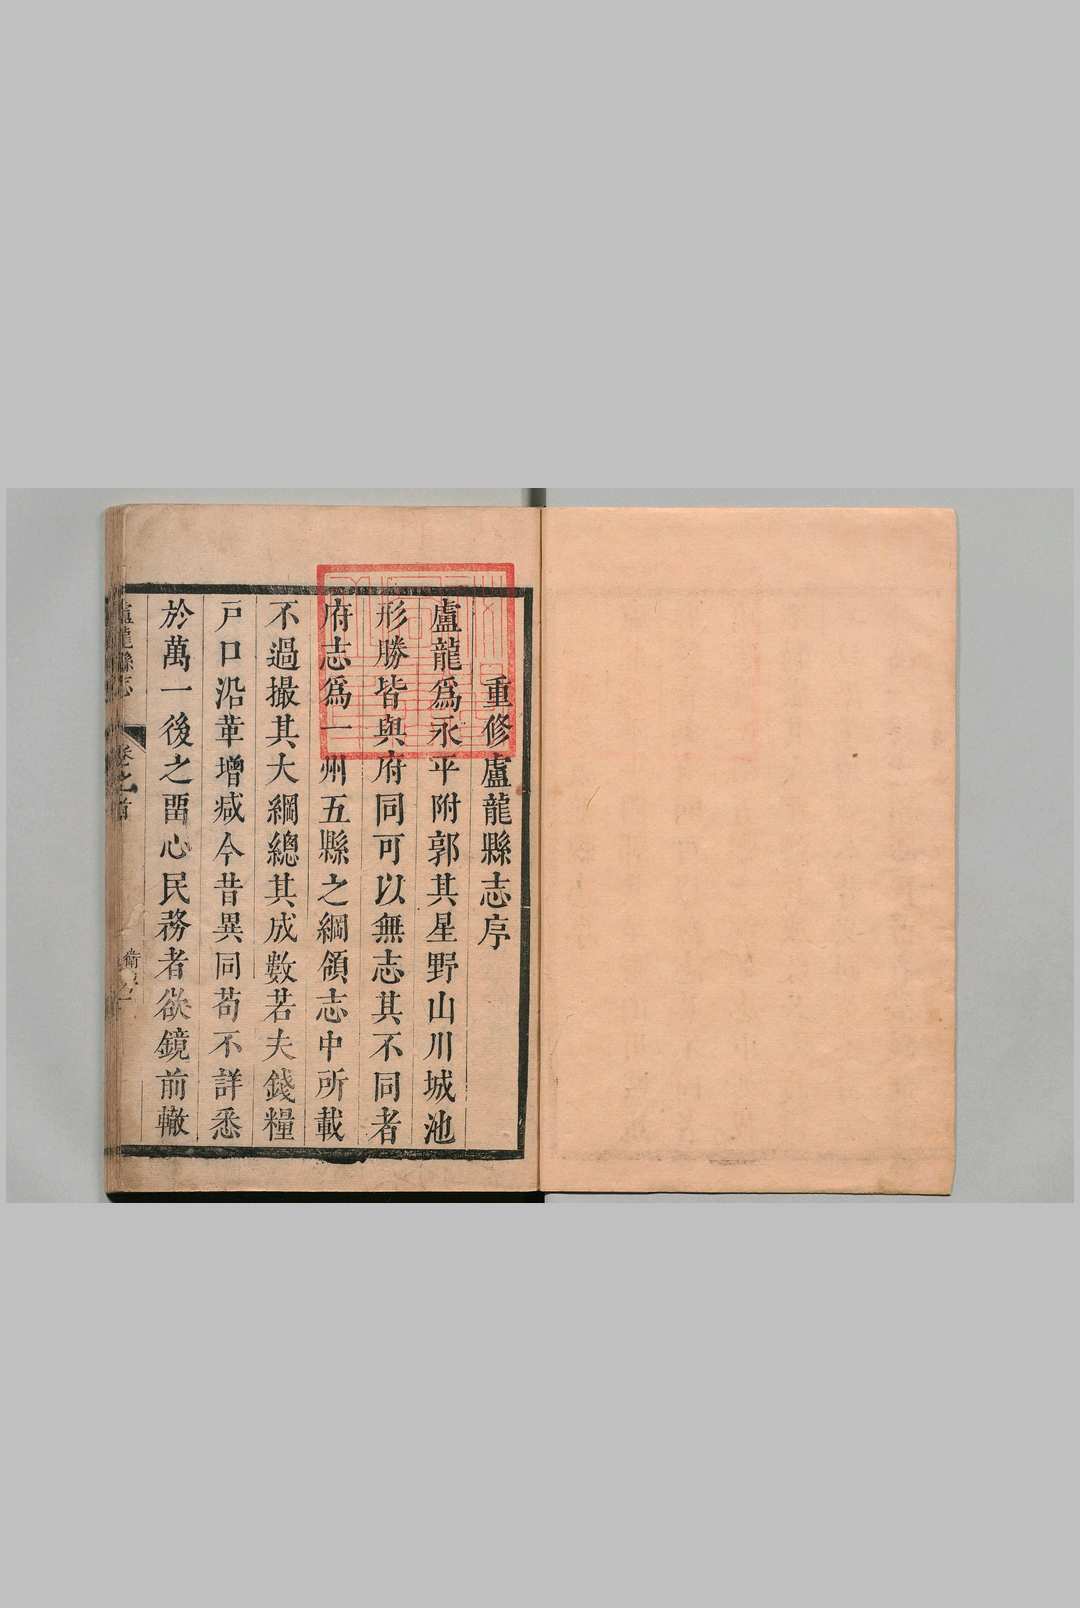 重修盧龍縣志序
盧龍爲永平附郭其星野山川城池
形勝皆與府同可以無志其不同者
府志爲一州五縣之綱領志中所載
不過撮其大綱總其成數若夫錢糧
戸口沿革增减今昔異同苟不詳悉
於萬一後之畱心民務者欲鏡前轍
盧龍縣志
卷之首